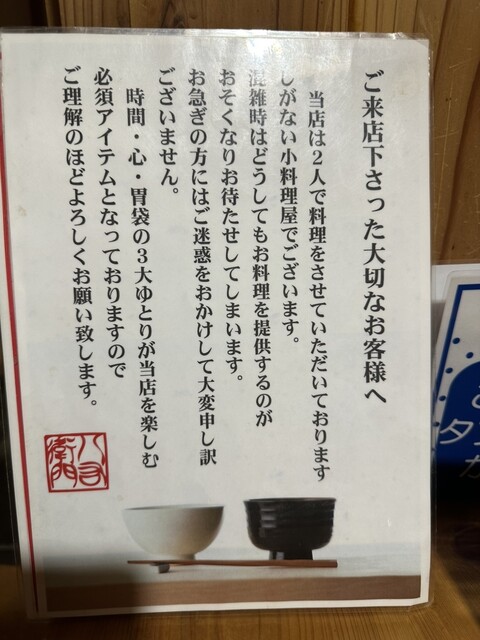 ご来店下さった大切なお客様へ
当店は2人で料理をさせていただいております
しがない小料理屋でございます。
混雑時はどうしてもお料理を提供するのが
おそくなりお待たせしてしまいます。
お急ぎの方にはご迷惑をおかけして大変申し訳
ございません。
時間・心・胃袋の3大ゆとりが当店を楽しむ
必須アイテムとなっておりますので
ご理解のほどよろしくお願い致します。